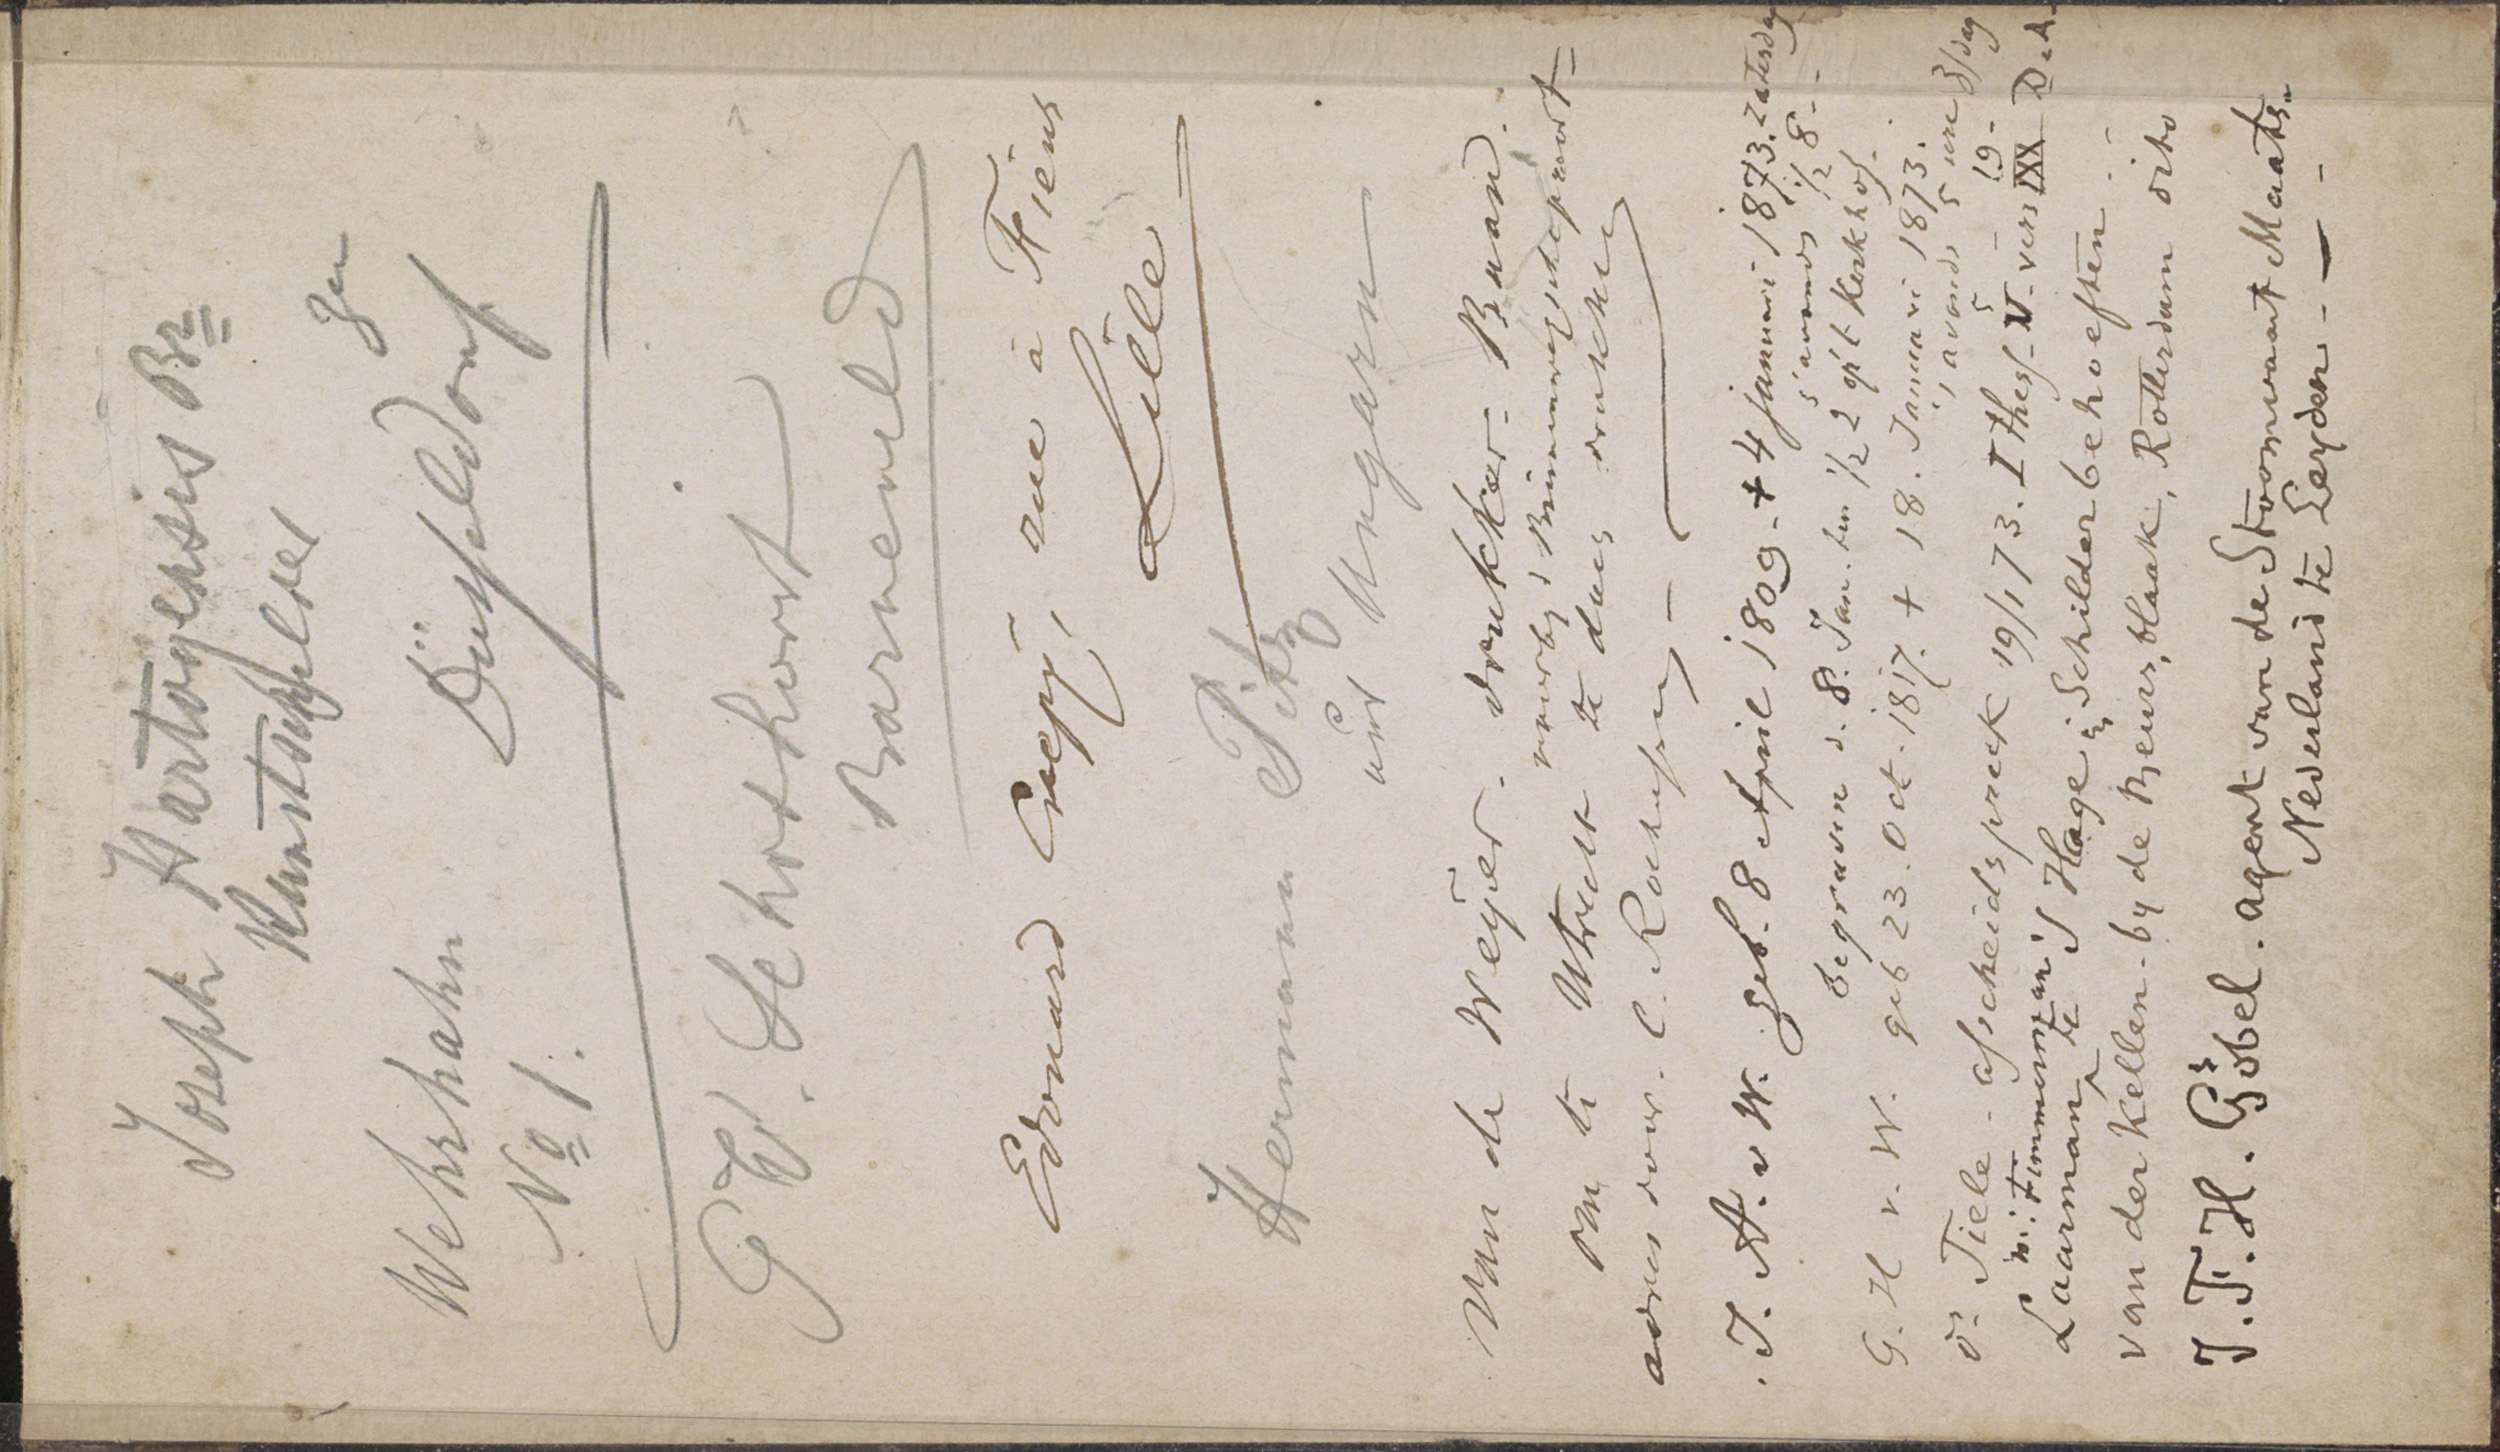 Joseph Hartogensis Br
Kunsthandler
Wehrhahn
No 1.
Düsseldorf
G W. Schothorst
Barneveld
Edouard Crepy, rue à Fiens
Lille
Hermann Pitz
aus Ungarn
Van de Weijer. drukker. Band.
van te Utrecht te
adres voor. C. Rochussen
J. A. v W. geb. 8 April 1809. + 4 januari 1873. zaterdag
s'avonds 1/2 8.
begraven d. 8. Jan. ten 1/2 2 op't Kerkhof.
G. H v. W. geb 23. Oct. 1817. + 18. Januari 1873.
s'avonds 5 ure
Ds. Tiele. afscheidspreek 19/1 73. I Thess. V. vers 19.
Laarman te 's Hage in Schilderbehoeften
van der Kellen. by de Beurs, blaak, Rotterdam dito
J. F. H. Göbel. agent van de Stoomvaart Maats.
Nederland te Leyden